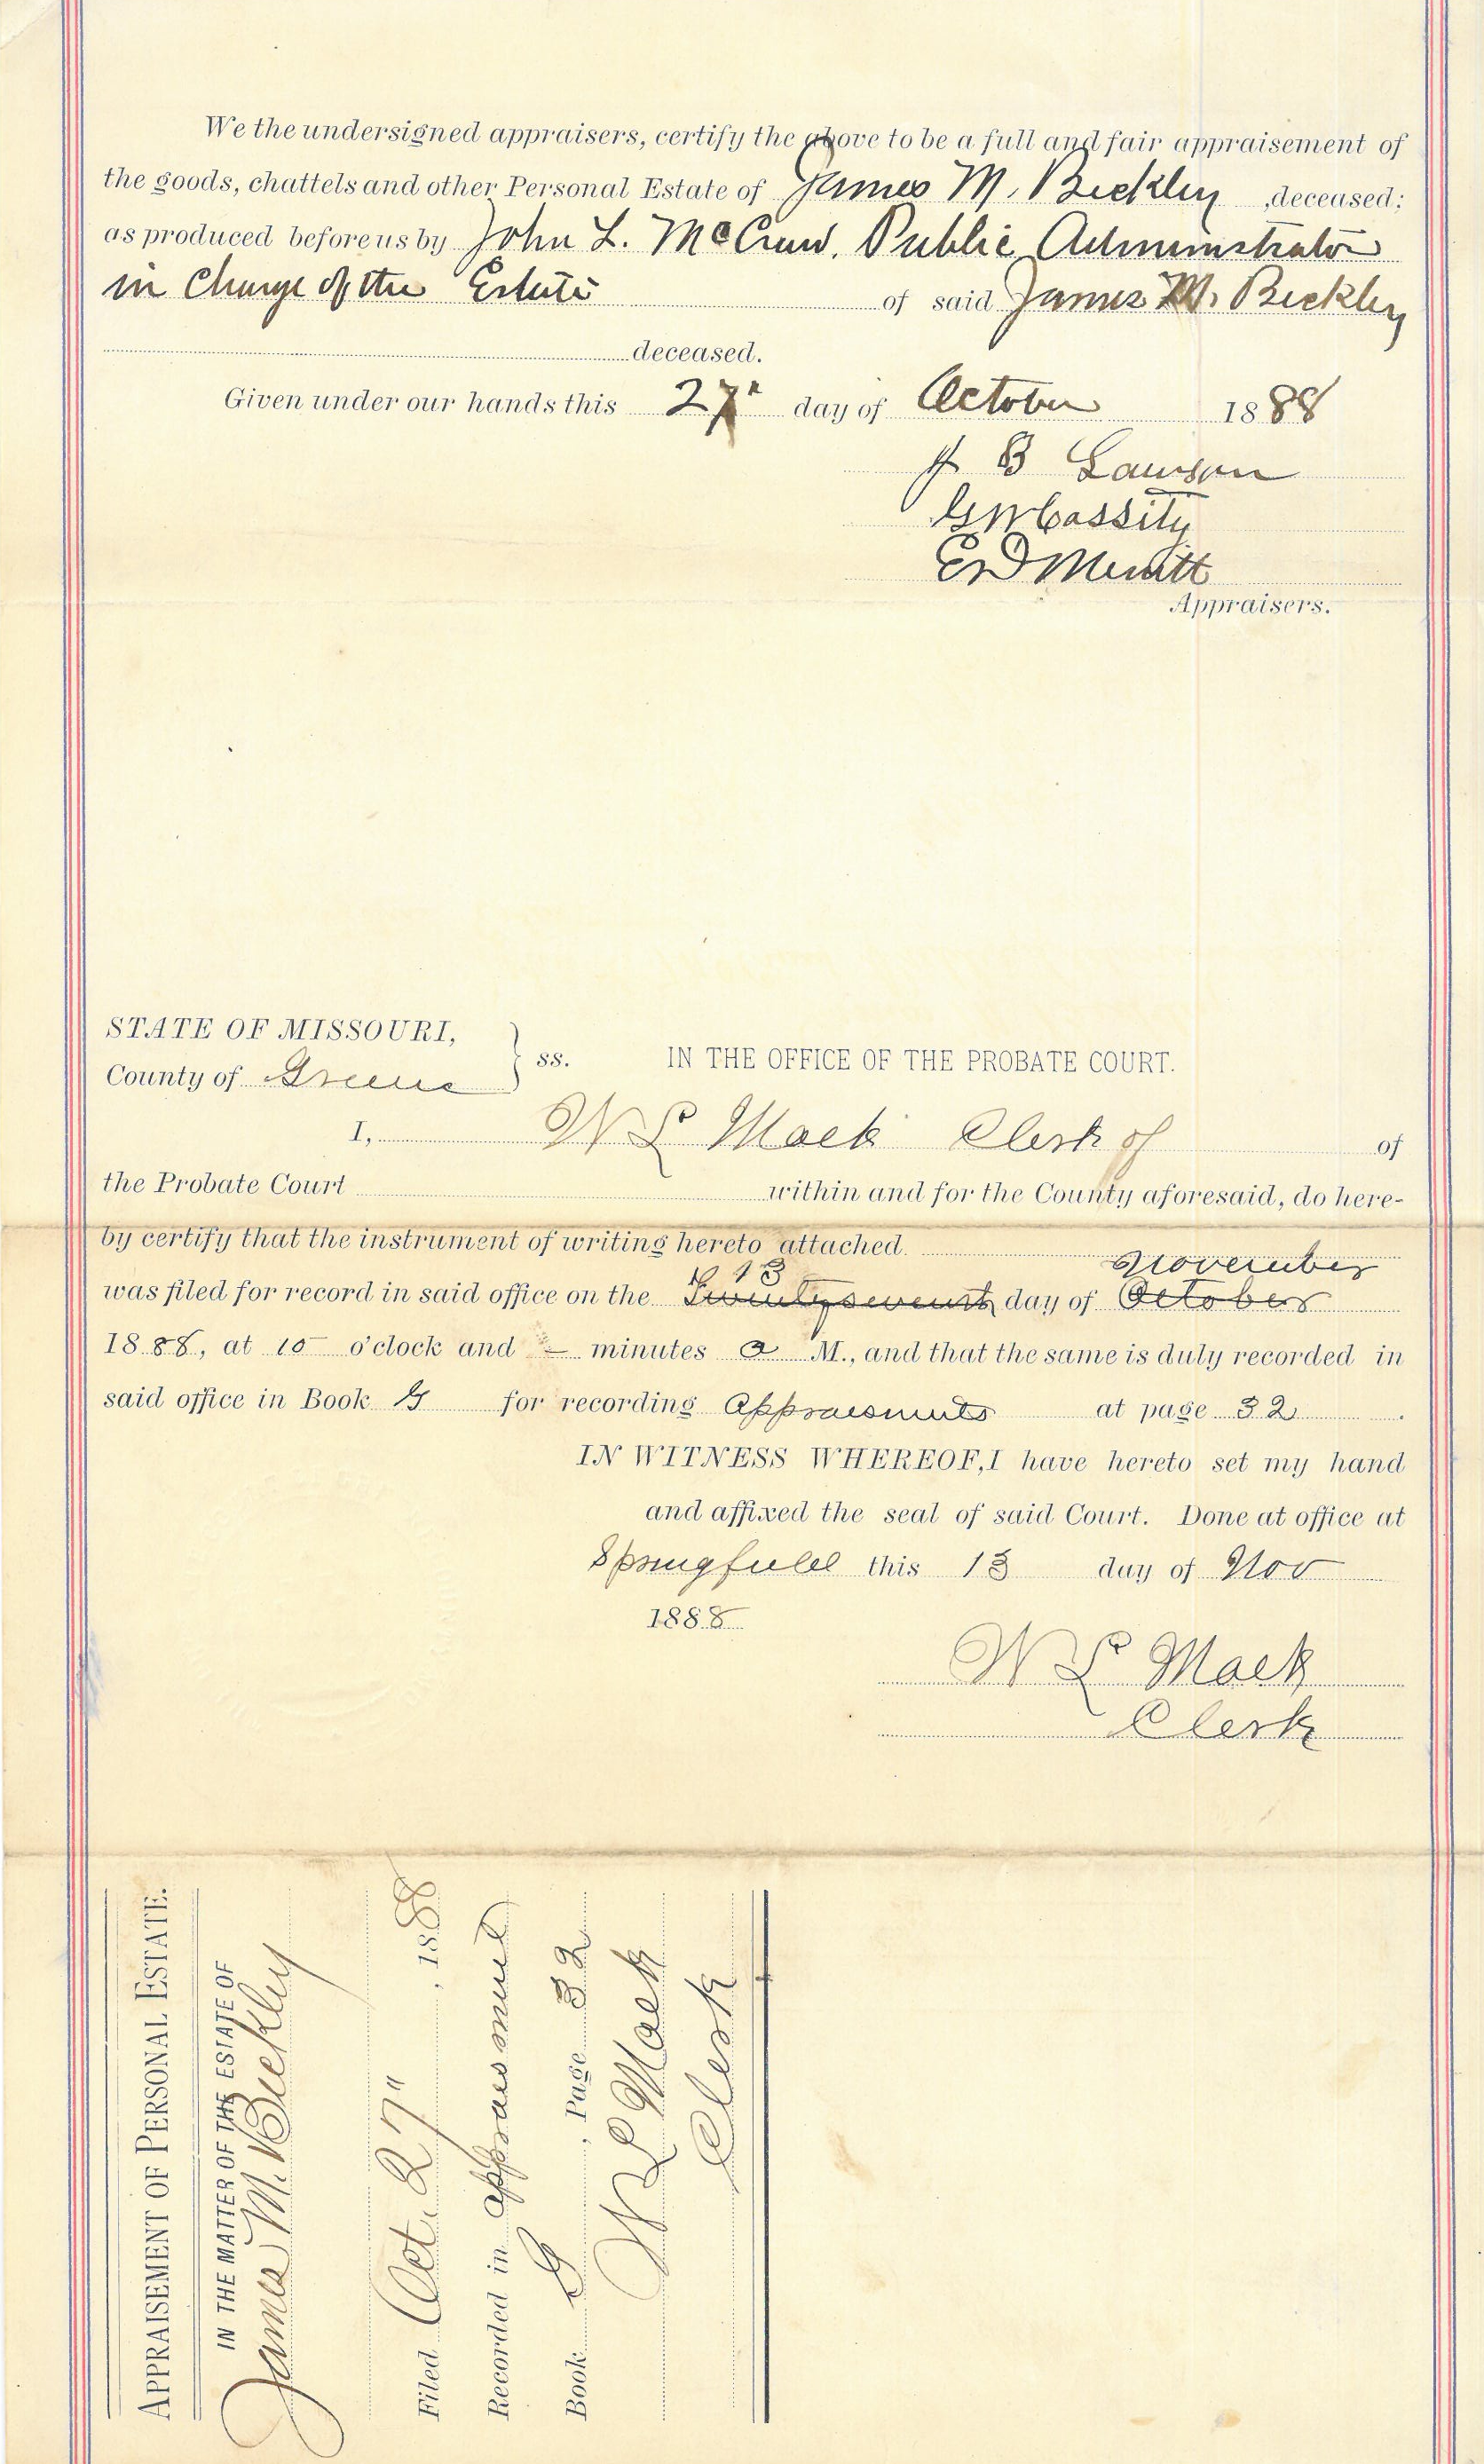 We the undersigned appraisers, certify the above to be a full and fair appraisement of
the goods, chattels and other Personal Estate of James M. Bickley , deceased;
as produced before us by John L. McCraw. Public Administrator
in Charge of the Estate of said James M. Bickley
deceased.
Given under our hands this 27" day of October 1888
J B Lawson
GW Cassity
ED Merritt
Appraisers.
STATE OF MISSOURI,
County of Greene } ss. IN THE OFFICE OF THE PROBATE COURT.
I, W L Mack Clerk of of
the Probate Court within and for the County aforesaid, do here-
by certify that the instrument of writing hereto attached
13 November
was filed for record in said office on the Twenty seventh day of October
1888, at 10 o'clock and – minutes a M., and that the same is duly recorded in
said office in Book G for recording Appraesments at page 32 .
IN WITNESS WHEREOF, I have hereto set my hand
and affixed the seal of said Court. Done at office at
Springfield this 13 day of Nov
1888
W L Mack
Clerk
APPRAISEMENT OF PERSONAL ESTATE.
IN THE MATTER OF THE ESTATE OF
James M. Bickley
Filed Oct. 27" , 1888
Recorded in appraesment
Book G , Page 32
W L Mack
Clerk